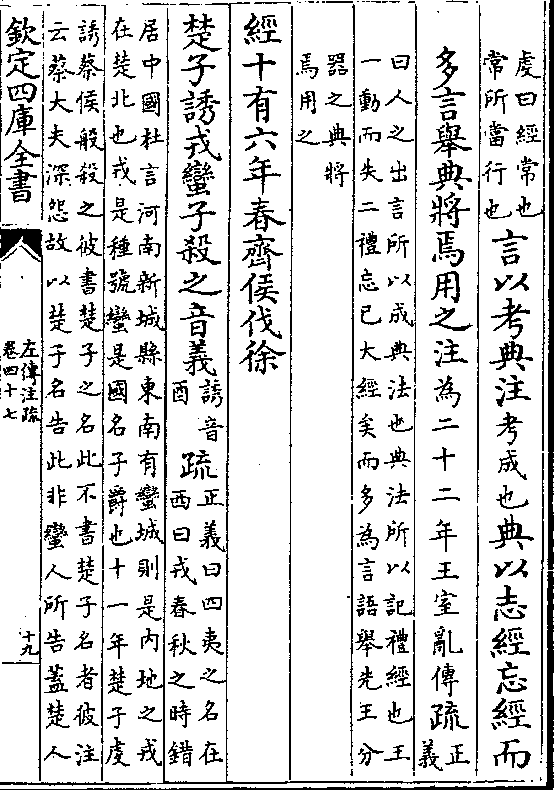 虔曰經常也
常所當行也
言以考典注考成也典以志經忘經而
多言舉典將焉用之注為二十二年王室亂傳疏正
義
曰人之出言所以成典法也典法所以記禮經也王
一動而失二禮忘已大經矣而多為言語舉先王分
器之典將
焉用之
經十有六年春齊侯伐徐
楚子誘戎蠻子殺之音義誘音
酉
疏正義曰四夷之名在
西曰戎春秋之時錯
居中國杜言河南新城縣東南有蠻城則是内地之戎
在楚北也戎是種號蠻是國名子爵也十一年楚子虔
誘蔡侯般殺之彼書楚子之名此不書楚子名者彼注
云蔡大夫深怨故以楚子名告此非蠻人所告蓋楚人
欽定四庫全書
左傳注疏
卷四十七
十九